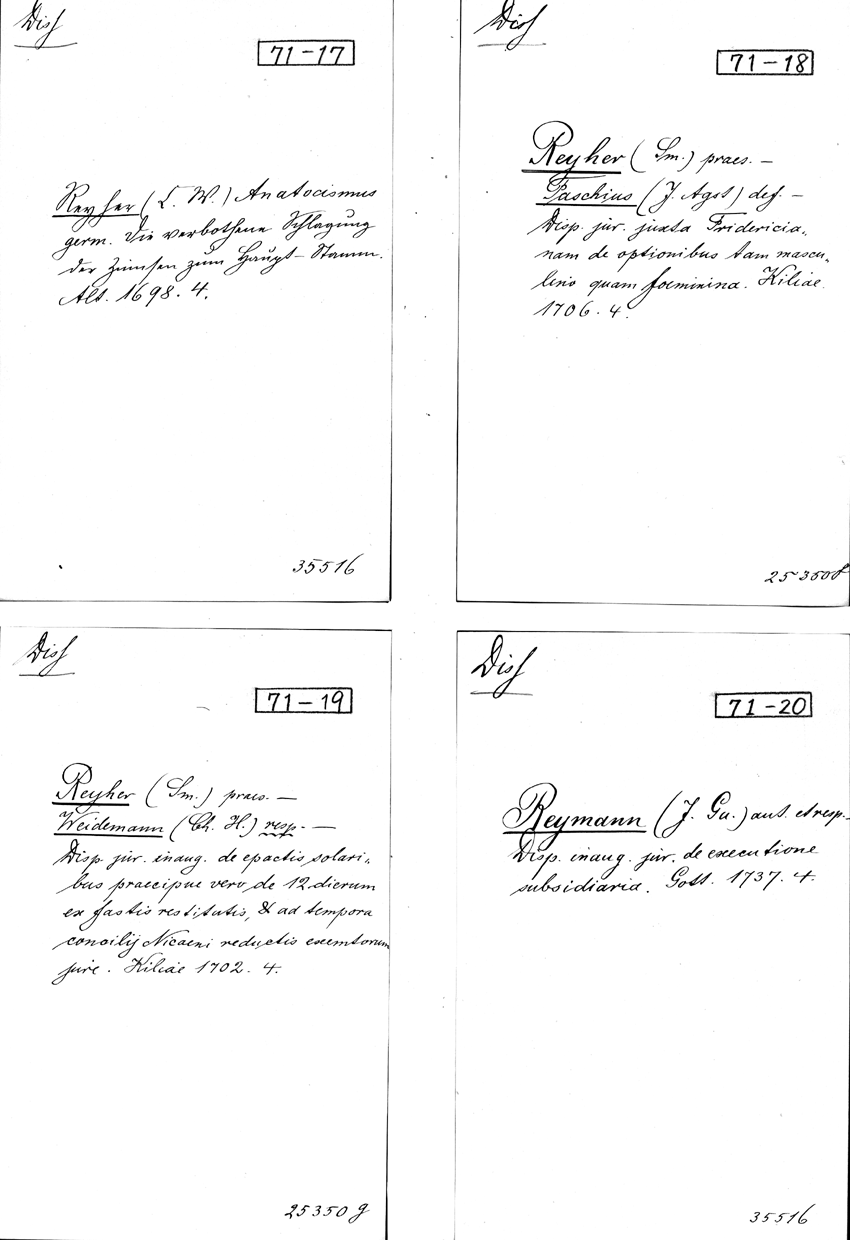 Diss
71-17
Reyher (L. W.) Anatocismus
germ. Die verbothene Schlagung
der Zinnsen zum Haupt-Stamm.
Alt. 1698. 4.
35516
Diss
71-18
Reyher (Sm.) praes. —
Paschius (J. Agst) def. —
Disp. jur. juxta Fridericia,
nam de optionibus tam mascu,
lino quam foeminina. Kiliae
1706. 4.
25350f
Diss
71-19
Reyher (Sm.) praes. —
Weidemann (Ch. H.) resp. —
Disp. jur. inaug. de epactis solari,
bus praecipue vero, de 12. dierum
ex fastis restitutis, & ad tempora
concilij Nicaeni reductis exemtorum
jure. Kiliae 1702. 4.
25350g
Diss
71-20
Reymann (J. Gu.) aut. et resp. —
Disp. inaug. jur. de executione
subsidiaria. Gott. 1737. 4.
35516